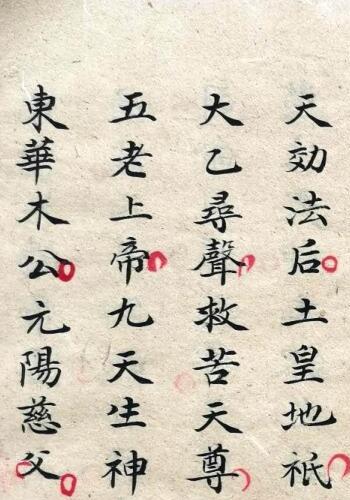 天効法后土皇地祇
大乙尋聲救苦天尊
五老上帝九天生神
東華木公元陽慈父